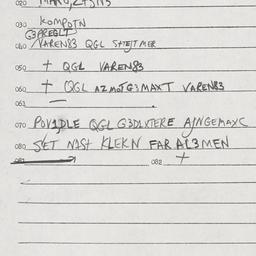 020
030 KOMPOTN
G3PREGLT
040 VAREN83 QGL
050 + QGL VAREN83
060 + QGL AZMOTG3MAXT VAREN83
061
070 POV1DLE QGL G3DLXTERE AJNGEMAXC
080 SET NAST KLEKN FAR AL3MEN
081 082 +